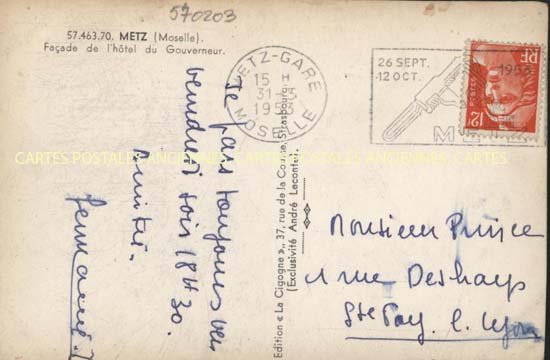 570203
57.463.70. METZ (Moselle).
Façade de l'hôtel du Gouverneur.
METZ-GARE
15 H
31-
MOSELLE
26 SEPT.
-12 OCT.
1953
RF
POSTES
12F
CARTES POSTALES ANCIENNES CARTES POSTALES ANCIENNES CARTES POSTALES ANCIENNES
Je pars toujours
vendredi soir 18 H 30.
Amitié.
Germaine
Edition « La Cigogne », 37, rue de la Course, Strasbourg
(Exclusivité André Leconte)
Monsieur Prince
1 rue Deshays
Ste Foy l. Lyon